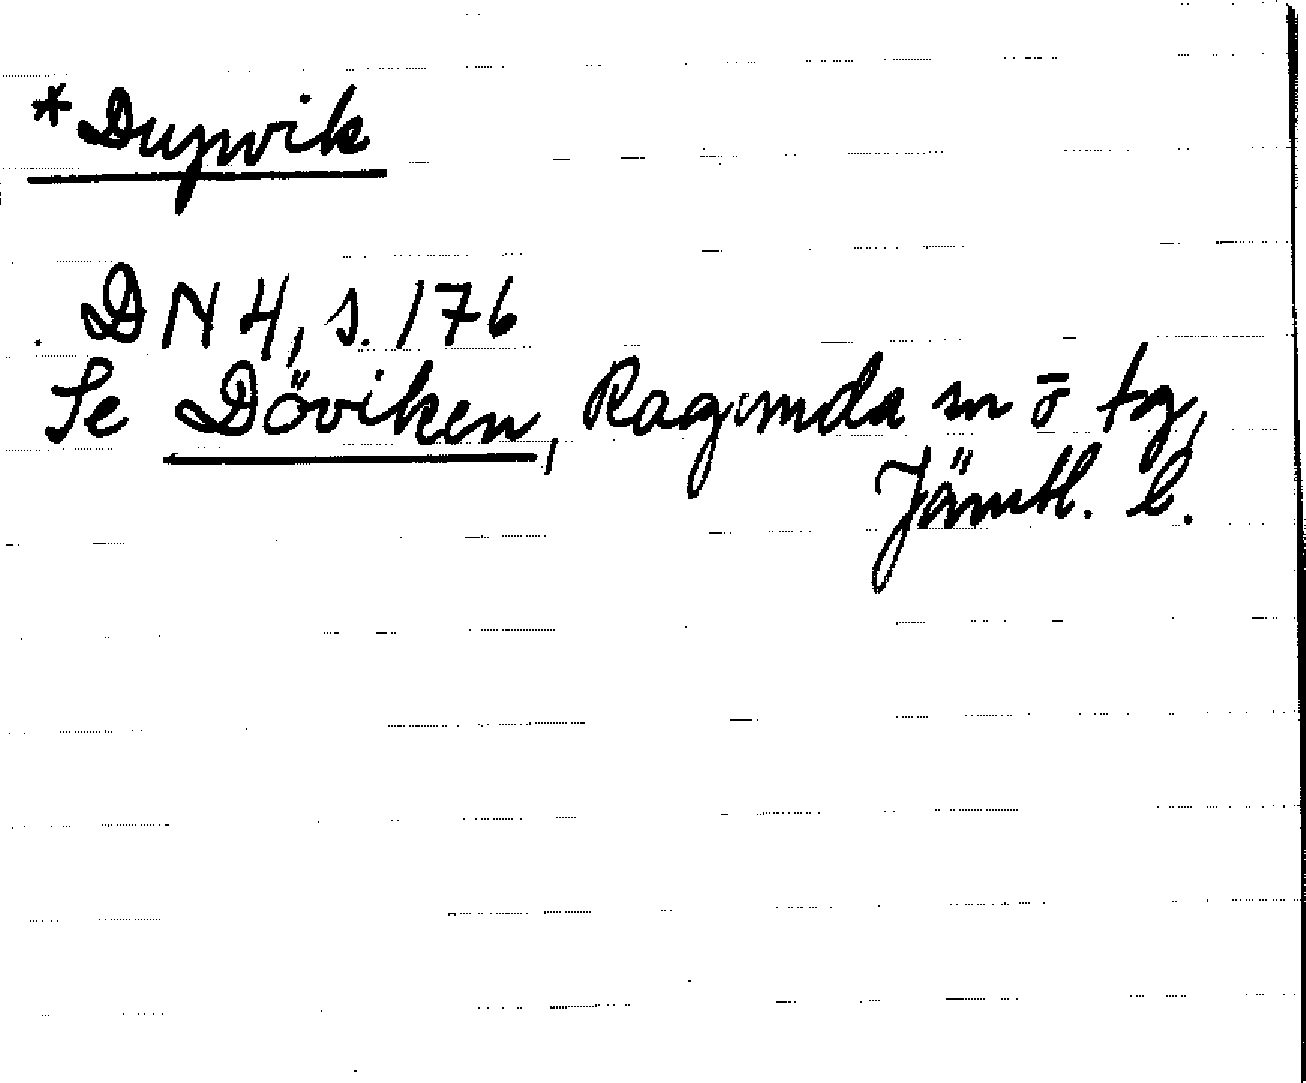 *Dupvik
DN 4, s. 176
Se Döviken, Ragunda sn o tg,
Jämtl. l.